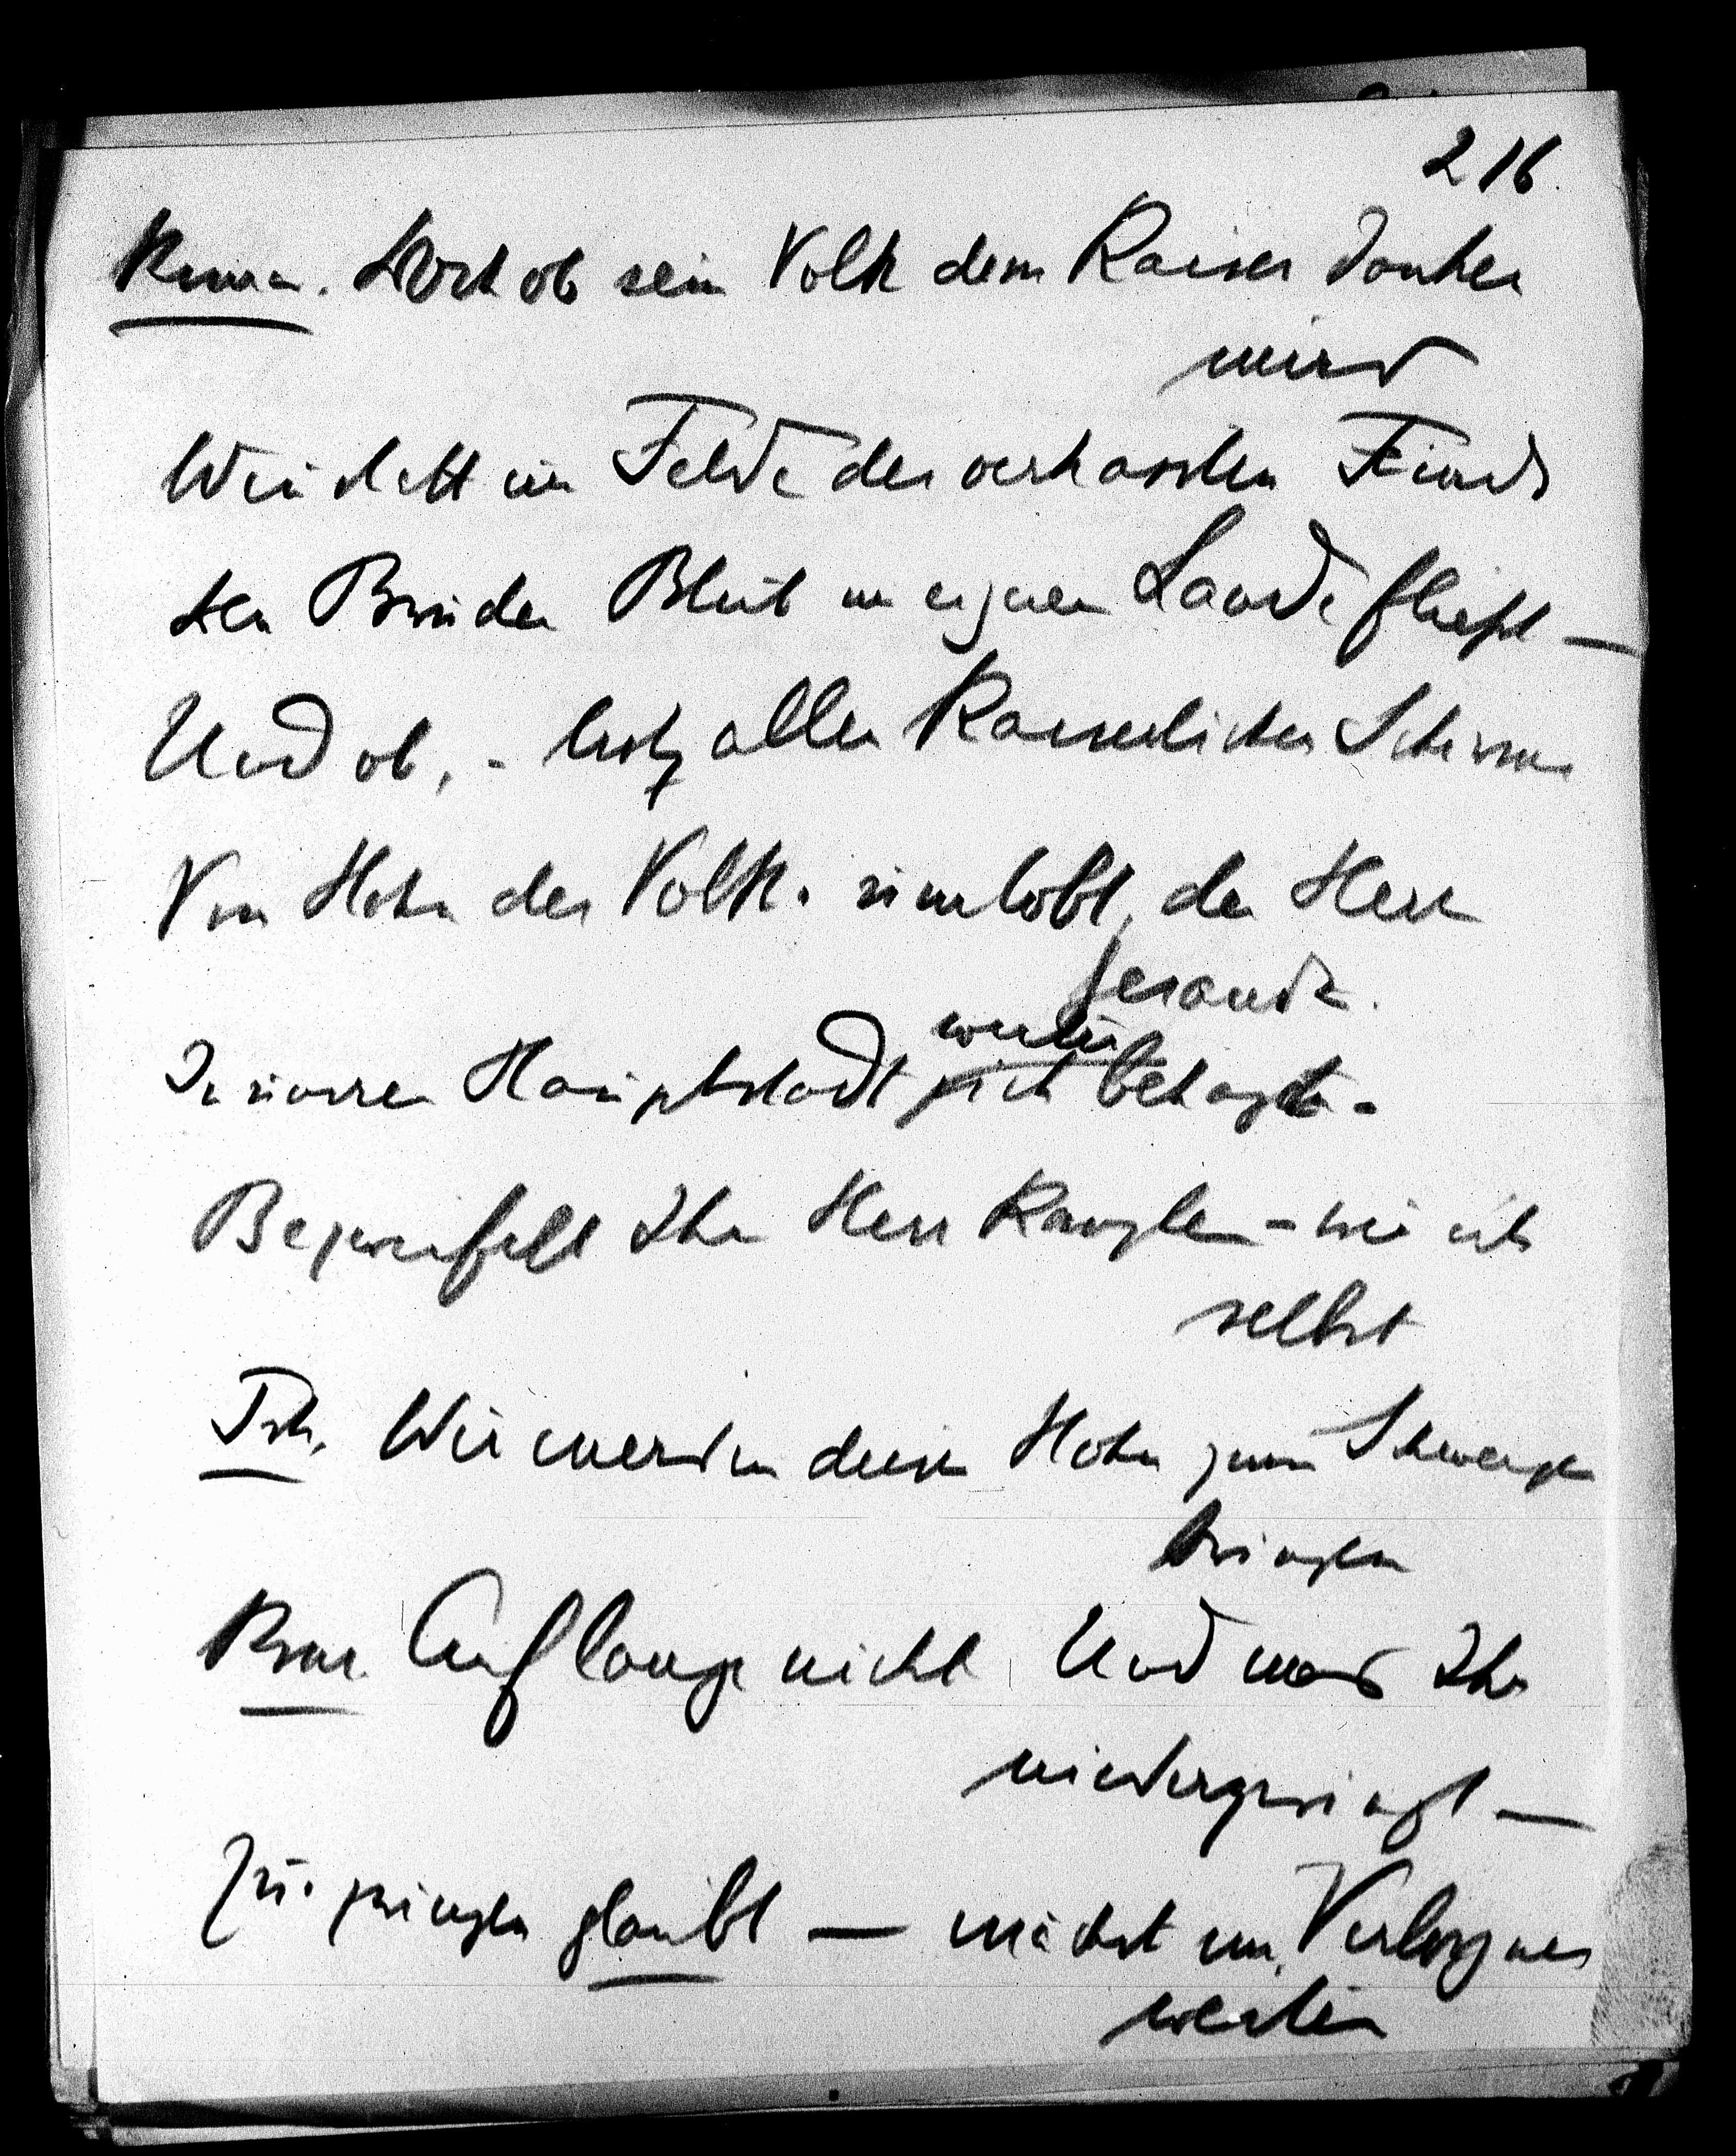 216.
Doch ob sein Volk dem Kaiser danken
wird
Weil statt im Felde des verhassten Feinds
der Brüder Blut im eignen Lande fliesst —
Und ob, - trotz allen Kaiserlichen Schirms
Vom Hohn des Volks umtobt, der Herr
Gesandte.
In unsrer Hauptstadt sich behagt -
Bezweifelt Ihr Herr Kanzler - wie ich
selbst
Tsh. Wir werden diesen Hohn zum Schweigen
bringen
Auf lange nicht. Und was Ihr
niederzwingt —
Zu zwingen glaubt — wächst im Verborgnen
weiter